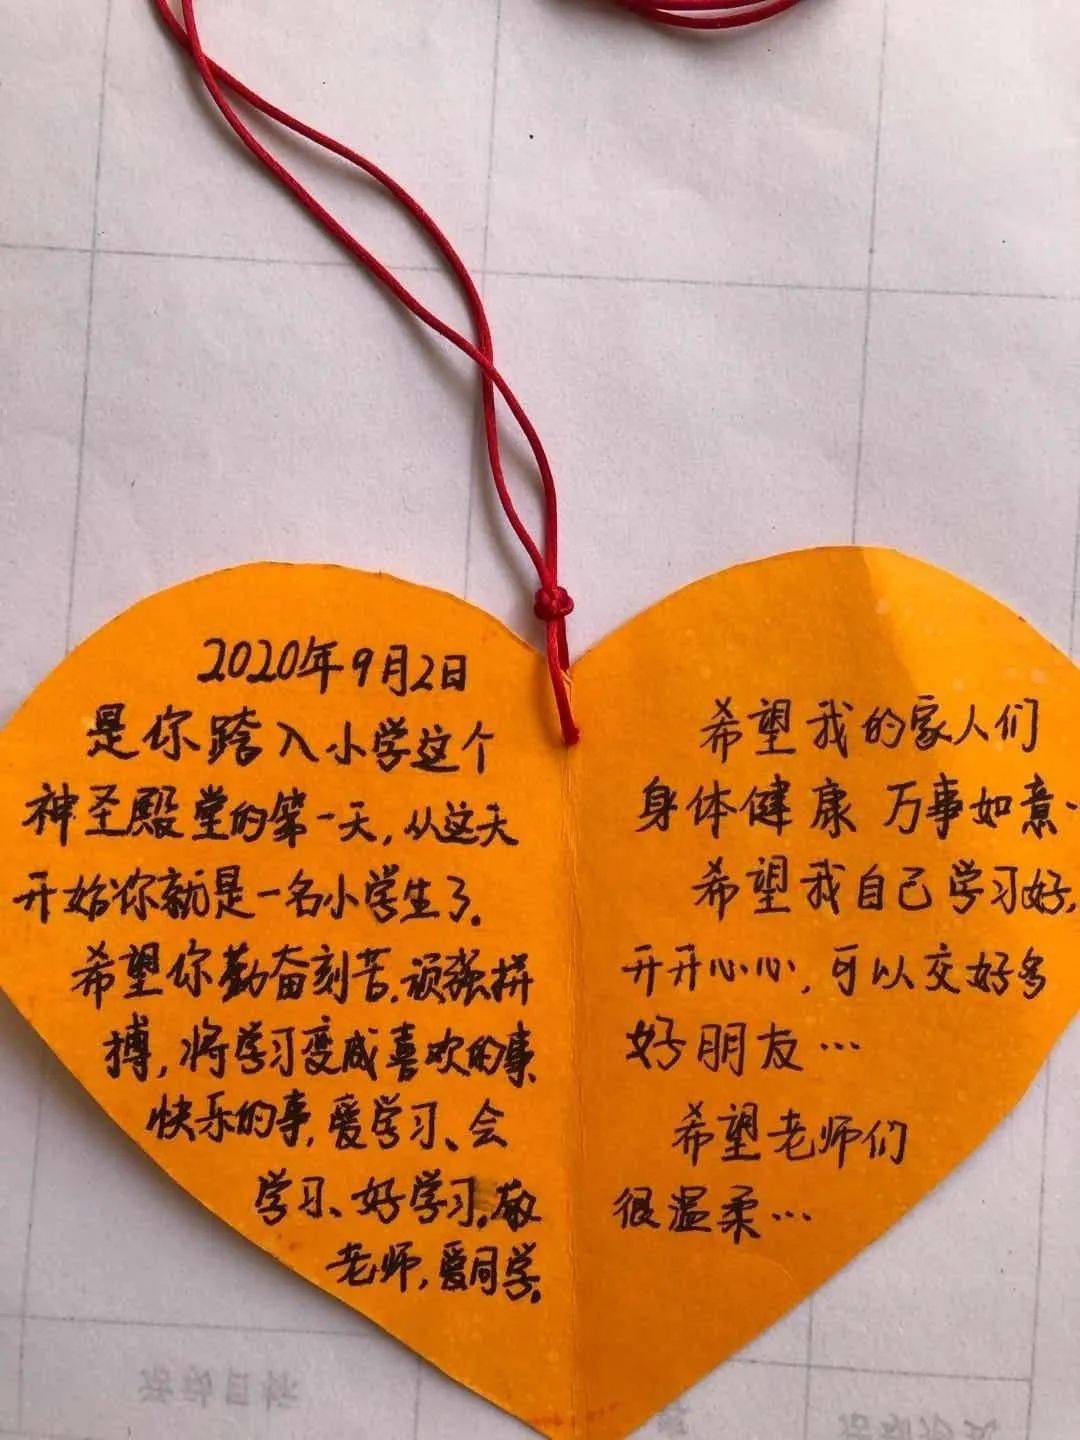 2020年9月2日
是你跨入小学这个
神圣殿堂的第一天,从这天
开始你就是一名小学生了.
希望你勤奋刻苦.顽强拼
搏,将学习变成喜欢的事、
快乐的事,爱学习、会
学习、好学习.敬
老师,爱同学.
希望我的家人们
身体健康 万事如意·
希望我自己学习好,
开开心心,可以交好多
好朋友…
希望老师们
很温柔…